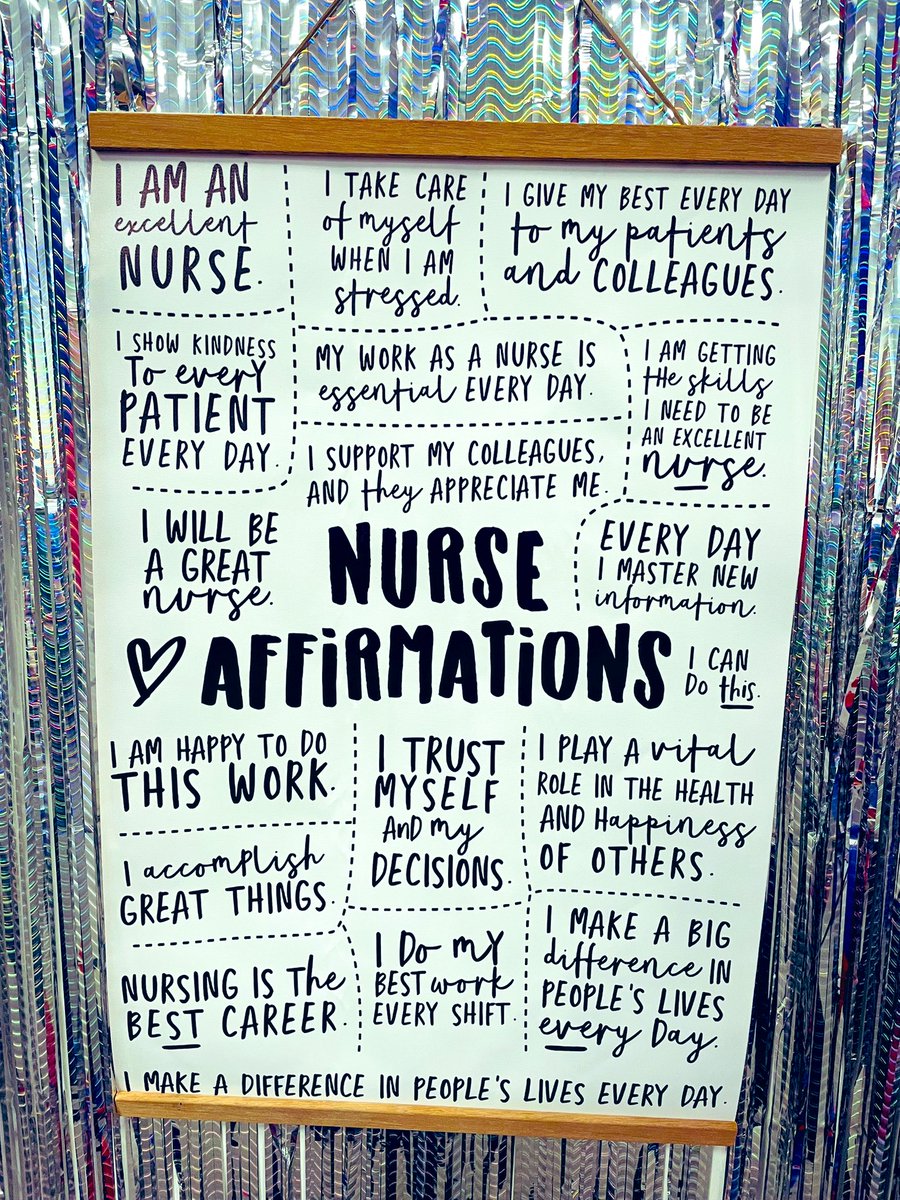 I AM AN
excellent
NURSE.
I TAKE CARE
of myself
WHEN I AM
stressed.
I GIVE MY BEST EVERY DAY
to my patients
and COLLEAGUES.
I SHOW KINDNESS
To every
PATIENT
EVERY DAY.
MY WORK AS A NURSE IS
essential EVERY DAY.
I AM GETTING
the skills
I NEED TO BE
AN EXCELLENT
nurse.
I SUPPORT MY COLLEAGUES,
AND they APPRECIATE ME.
I WILL BE
A GREAT
nurse.
EVERY DAY
I MASTER NEW
information.
NURSE
AFFiRMATiONS
I CAN
Do this.
I AM HAPPY TO DO
THIS WORK.
I TRUST
MYSELF
AND my
DECISIONS.
I PLAY A vital
ROLE IN THE HEALTH
AND Happiness
OF OTHERS.
I accomplish
GREAT THINGS.
NURSING IS The
BEST CAREER.
I Do MY
BEST work
EVERY SHIFT.
I MAKE A BIG
difference IN
PEOPLE'S LIVES
every Day.
I MAKE A DIFFERENCE IN PEOPLE'S LIVES EVERY DAY.